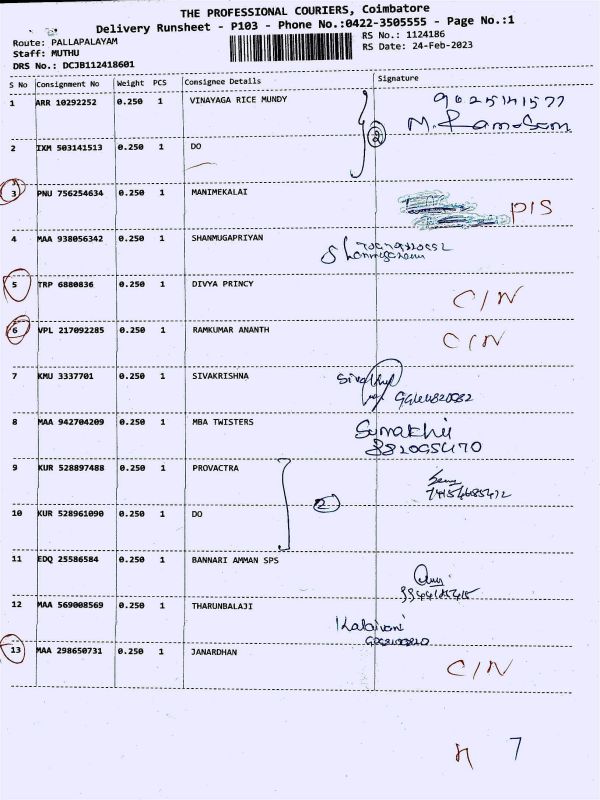 THE PROFESSIONAL COURIERS, Coimbatore
Delivery Runsheet - P103 - Phone No.:0422-3505555 - Page No.:1
Route: PALLAPALAYAM
Staff: MUTHU
DRS No.: DCJB112418601
RS No.: 1124186
RS Date: 24-Feb-2023
S No Consignment No Weight PCS Consignee Details Signature
1 ARR 10292252 0.250 1 VINAYAGA RICE MUNDY 9025141577
M. Ramasam
2 IXM 503141513 0.250 1 DO 2
3 PNU 756254634 0.250 1 MANIMEKALAI PIS
4 MAA 938056342 0.250 1 SHANMUGAPRIYAN
5 TRP 6880836 0.250 1 DIVYA PRINCY C/N
6 VPL 217092285 0.250 1 RAMKUMAR ANANTH C/N
7 KMU 3337701 0.250 1 SIVAKRISHNA
8 MAA 942704209 0.250 1 MBA TWISTERS
9 KUR 528897488 0.250 1 PROVACTRA
10 KUR 528961090 0.250 1 DO 2
11 EDQ 25586584 0.250 1 BANNARI AMMAN SPS
12 MAA 569008569 0.250 1 THARUNBALAJI
13 MAA 298650731 0.250 1 JANARDHAN C/N
7